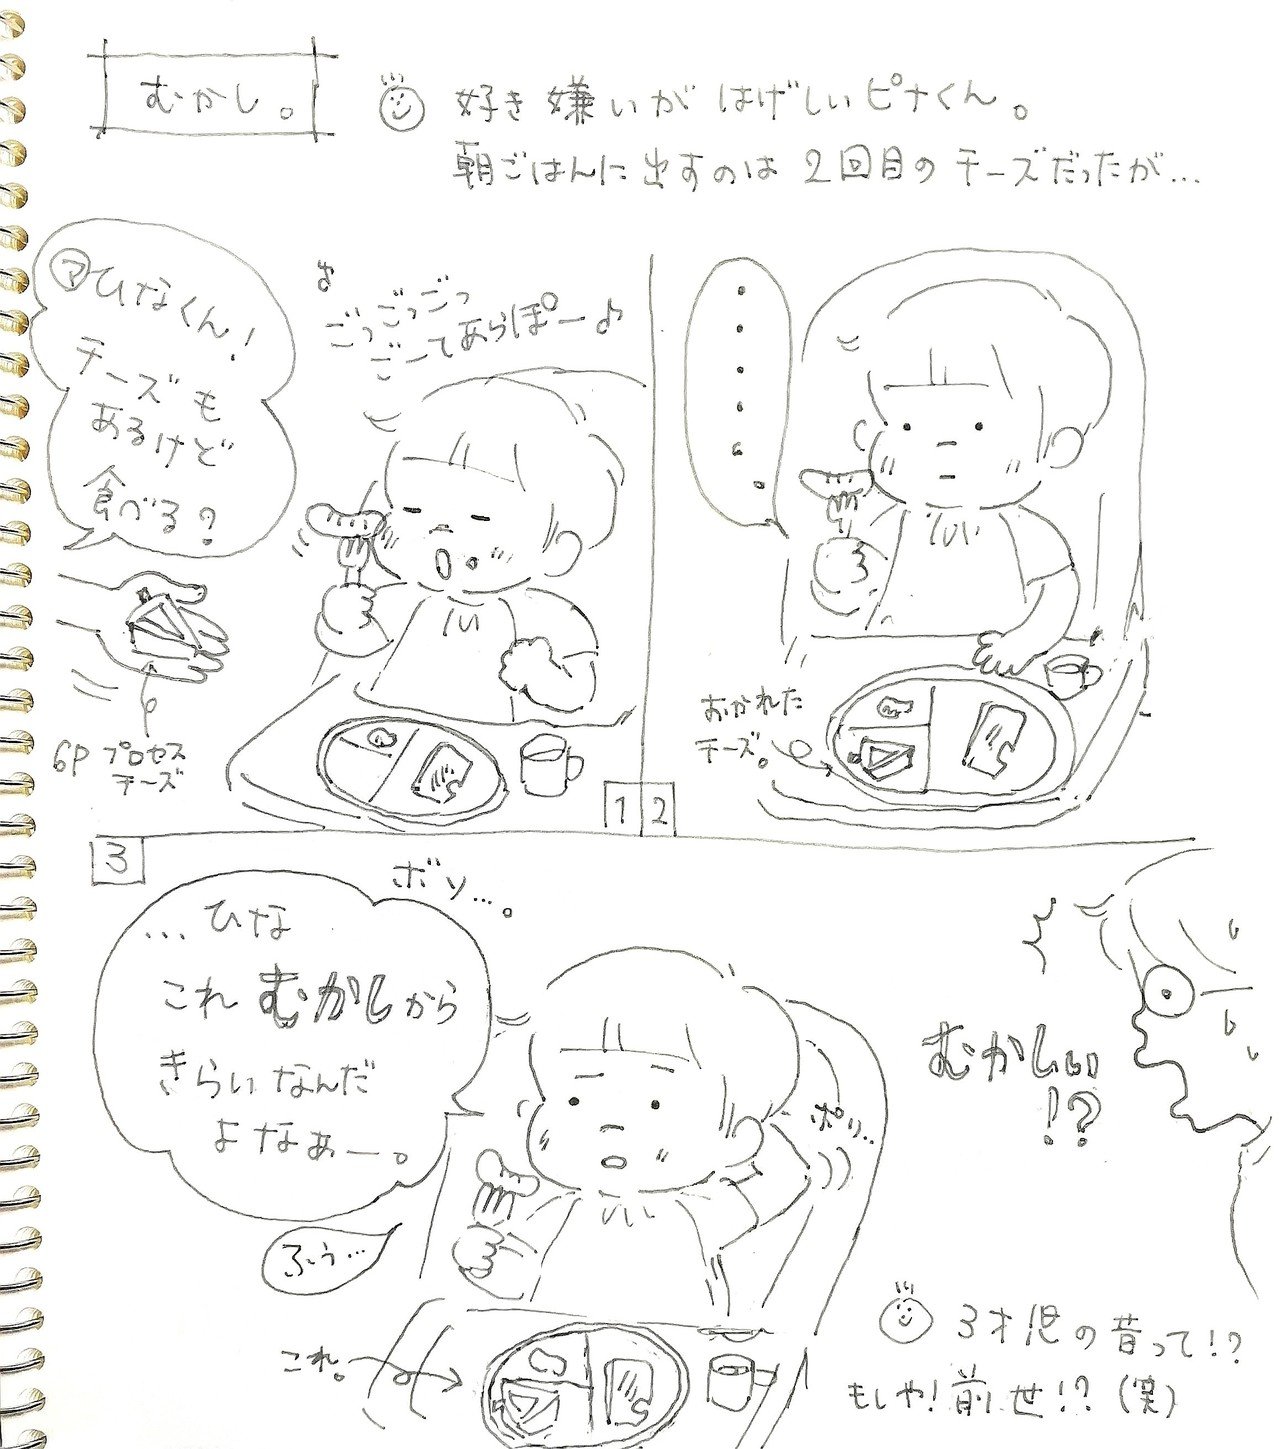 むかし。
好き嫌いがはげしいピナくん。
朝ごはんに出すのは2回目のチーズだったが…
マ ひなくん!
チーズも
あるけど
食べる?
♪
ごっごっごっ
ごーてあらぽー♪
6P プロセス
チーズ
1
・・・・・・
おかれた
チーズ。
2
3
ボソ…。
…ひな
これ むかしから
きらいなんだ
よなぁー。
ふぅ…
ポリ..
むかしぃ
!?
これ。
3才児の昔って!?
もしや!前世!?(笑)